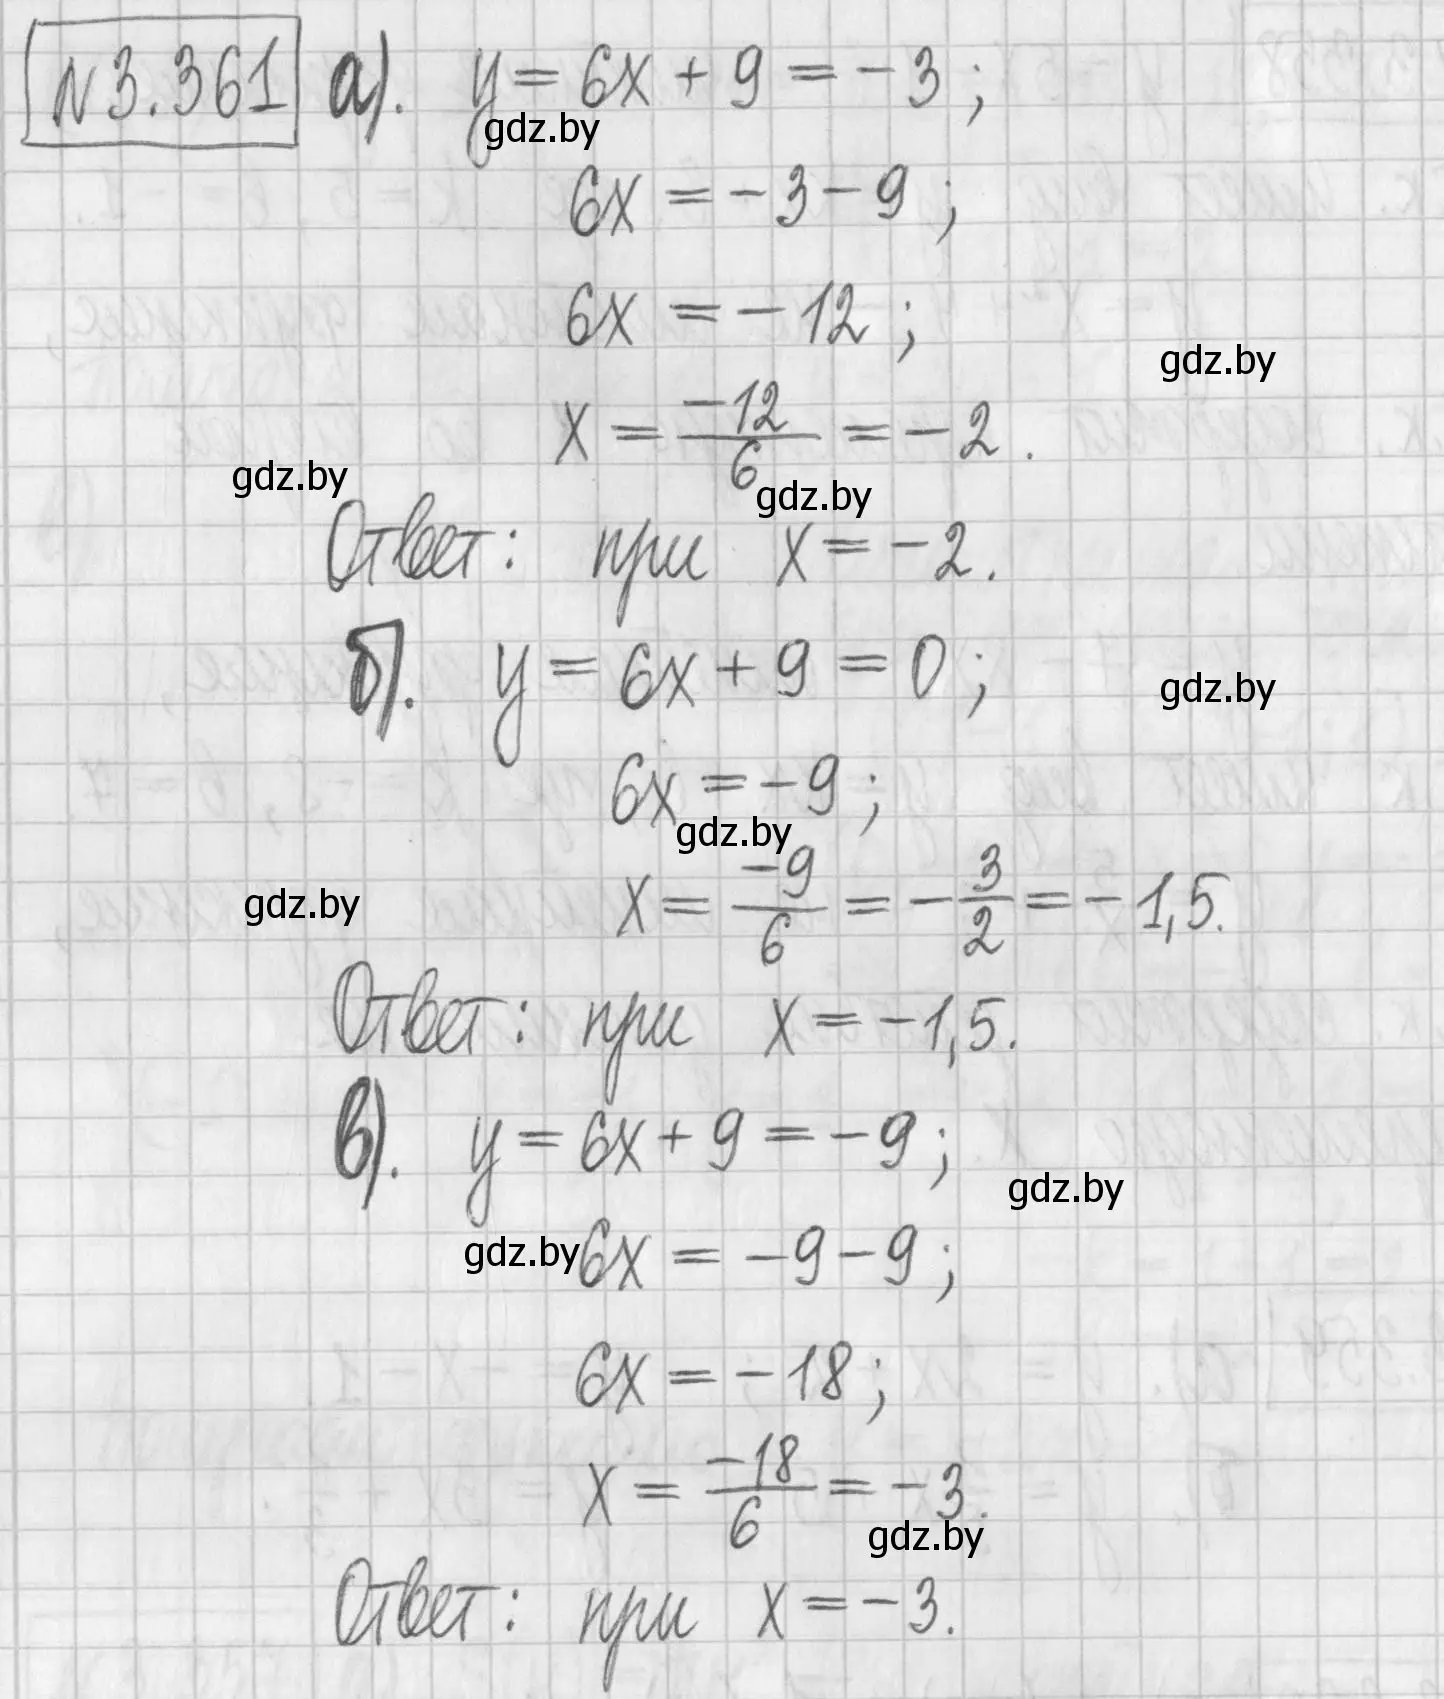 №3.361 а). y = 6x + 9 = -3;
gdz.by
6x = -3 - 9;
6x = -12;
gdz.by
x = -12/6 = -2.
gdz.by
gdz.by
Ответ: при x = -2.
б). y = 6x + 9 = 0;
gdz.by
6x = -9;
gdz.by
x = -9/6 = -3/2 = -1,5.
gdz.by
Ответ: при x = -1,5.
в). y = 6x + 9 = -9;
gdz.by
gdz.by
6x = -9 - 9;
6x = -18;
x = -18/6 = -3.
gdz.by
Ответ: при x = -3.